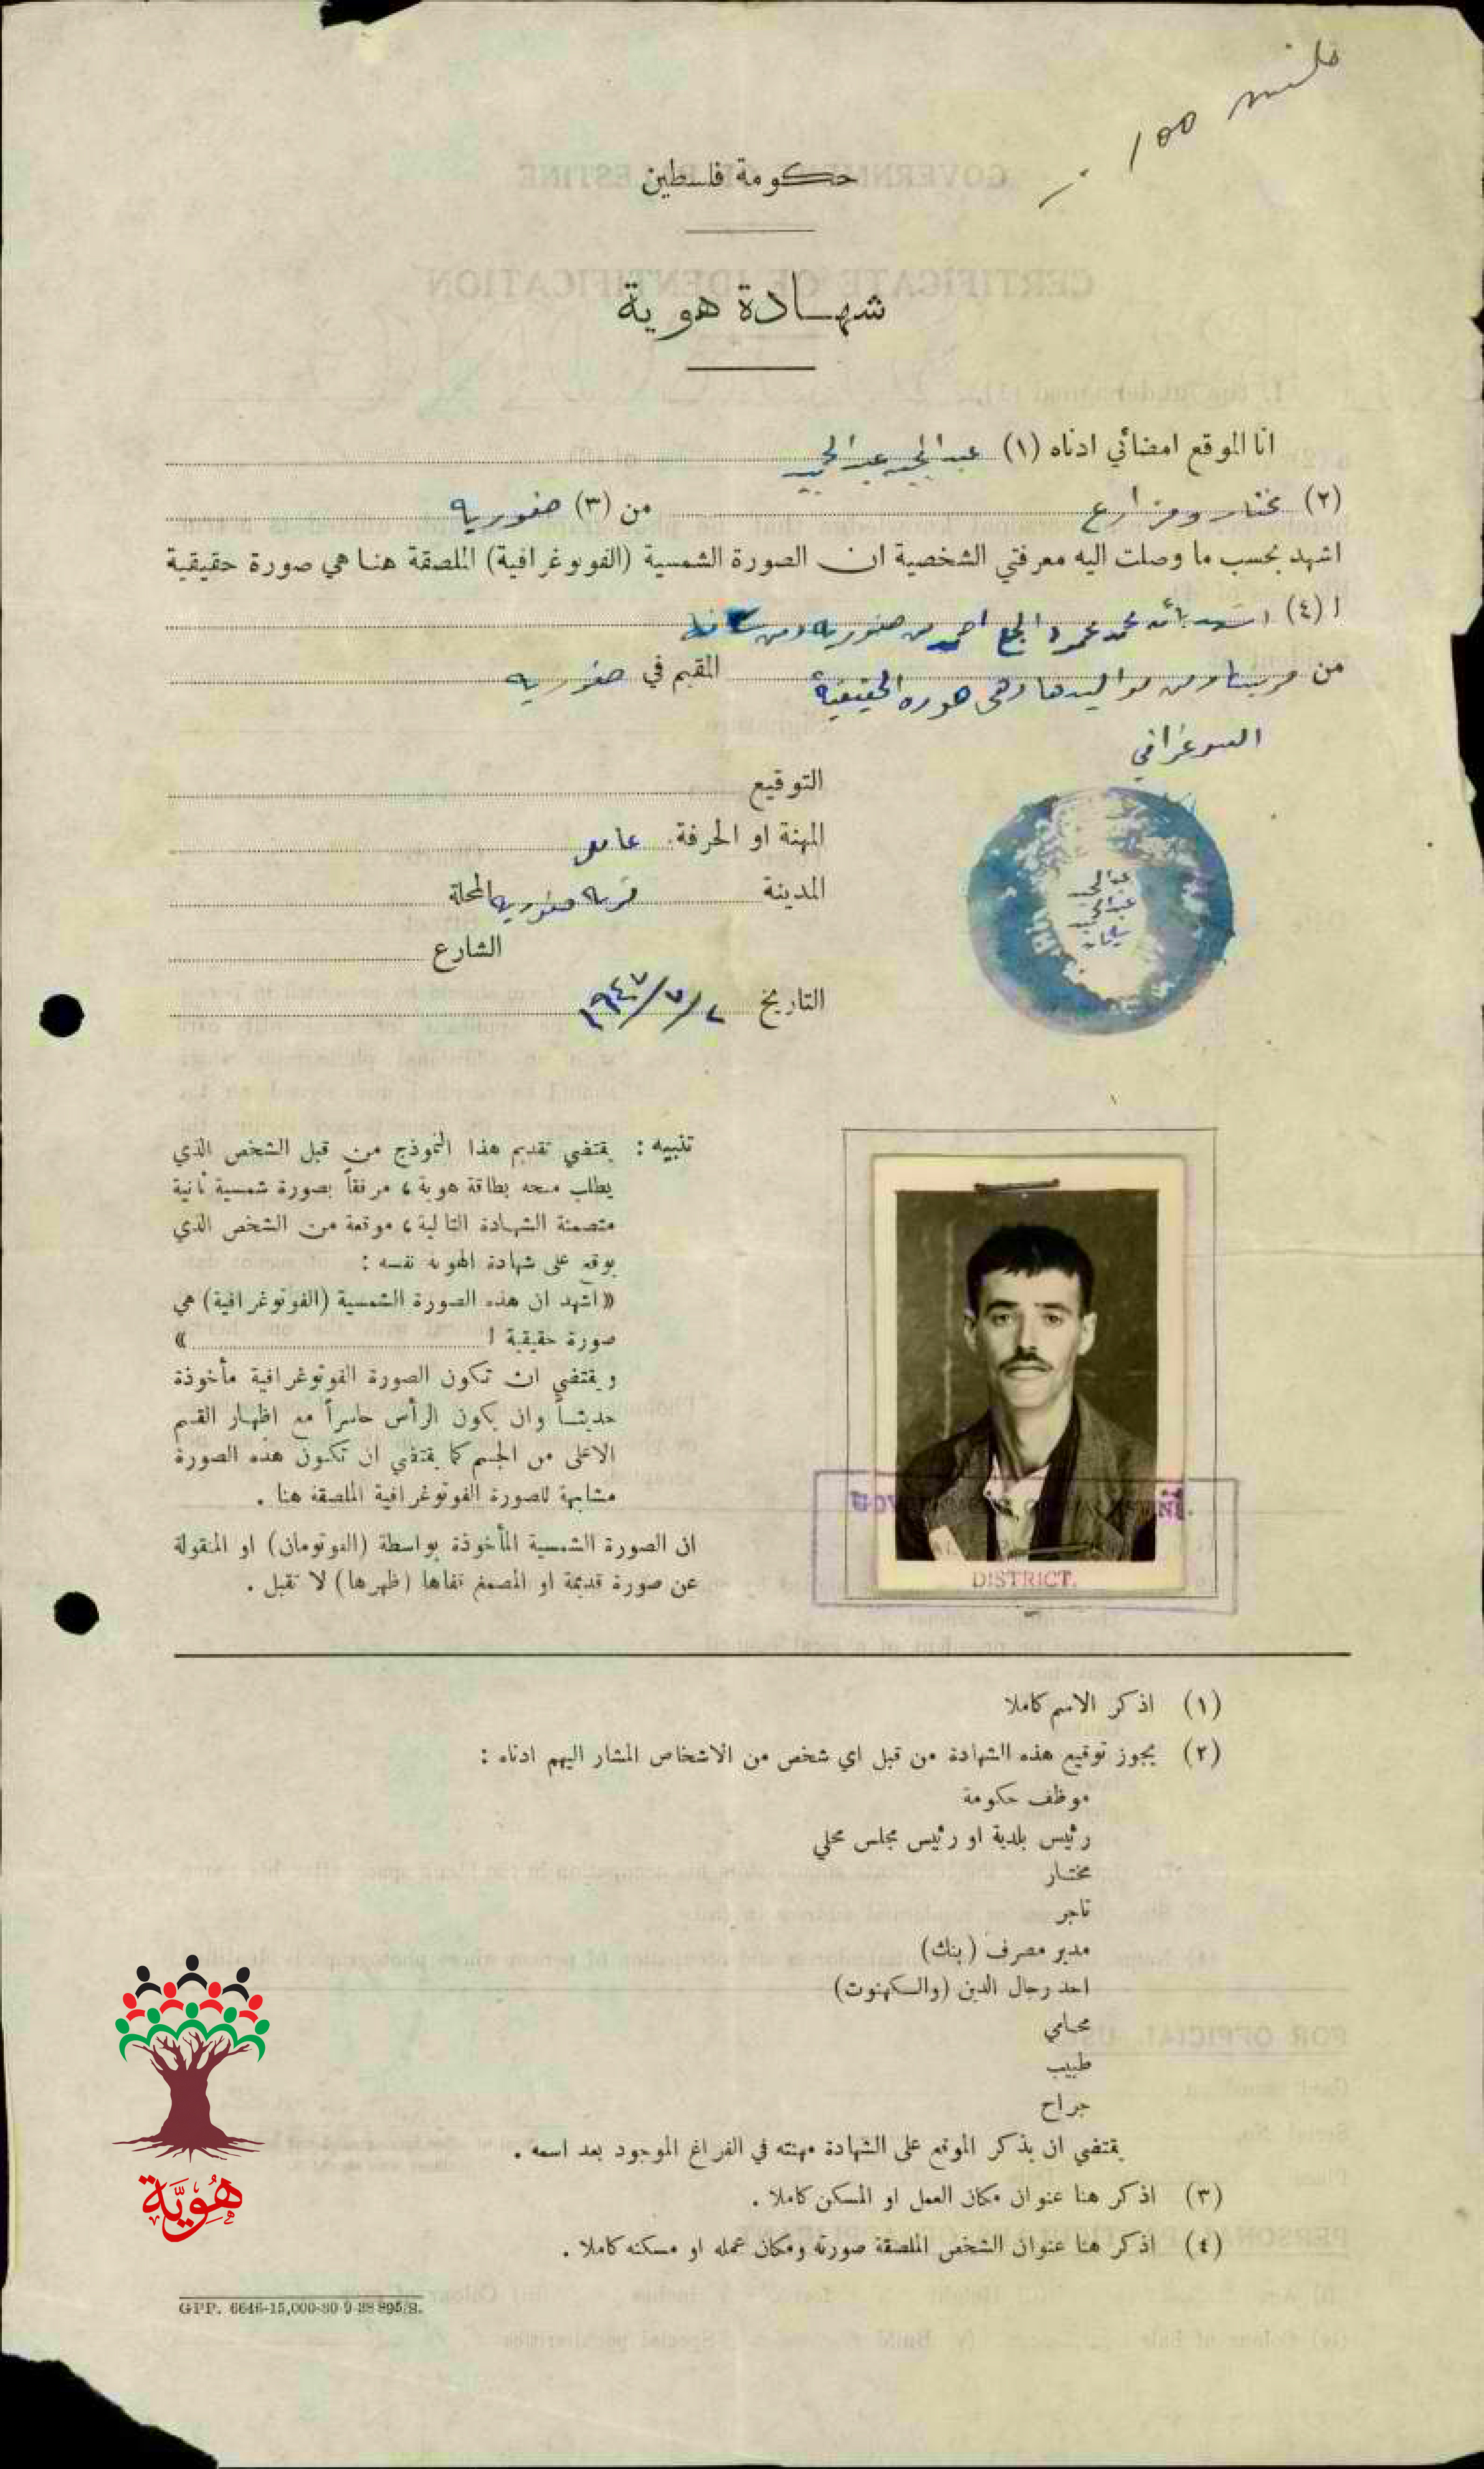 ١٥٥
حكومة فلسطين
شهادة هوية
انا الموقع امضائي ادناه (١) عبد المجيد عبد الحميد
(٢) مختار ومزارع من (٣) صفوريه
اشهد بحسب ما وصلت اليه معرفتي الشخصية ان الصورة الشمسية (الفوتوغرافية) الملصقة هنا هي صورة حقيقية
ا (٤) اشهد بأن محمد محمود احمد من صفوريه ومن سكانها
من ومن مواليدها وهي صوره الحقيقية المقيم في صفوريه
التوقيع
المهنة او الحرفة عامل
المدينة قرية صفوريه المحلة
الشارع
التاريخ ٢/٧/١٩٤٧
تنبيه : يقتضي تقديم هذا النموذج من قبل الشخص الذي
يطلب منحه بطاقة هوية ، مرفقاً بصورة شمسية ثانية
متضمنة الشهادة التالية ، موقعة من الشخص الذي
يوقع على شهادة الهوية نفسه :
« اشهد ان هذه الصورة الشمسية (الفوتوغرافية) هي
صورة حقيقية ا »
ويقتضي ان تكون الصورة الفوتوغرافية مأخوذة
حديثاً وان يكون الرأس حاسراً مع اظهار القسم
الاعلى من الجسم كما يقتضي ان تكون هذه الصورة
مشابهة للصورة الفوتوغرافية الملصقة هنا .
ان الصورة الشمسية المأخوذة بواسطة (الفوتومان) او المنقولة
عن صورة قديمة او المصمغ قفاها (ظهرها) لا تقبل .
DISTRICT.
(١) اذكر الاسم كاملا
(٢) يجوز توقيع هذه الشهادة من قبل اي شخص من الاشخاص المشار اليهم ادناه :
موظف حكومة
رئيس بلدية او رئيس مجلس محلي
مختار
تاجر
مدير مصرف (بنك)
احد رجال الدين (والكهنوت)
محامي
طبيب
جراح
يقتضي ان يذكر الموقع على الشهادة مهنته في الفراغ الموجود بعد اسمه .
(٣) اذكر هنا عنوان مكان العمل او المسكن كاملا .
(٤) اذكر هنا عنوان الشخص الملصقة صورته ومكان عمله او مسكنه كاملا .
هُوِيَّة
GPP. 6646-15,000-30-9-38 895/S.